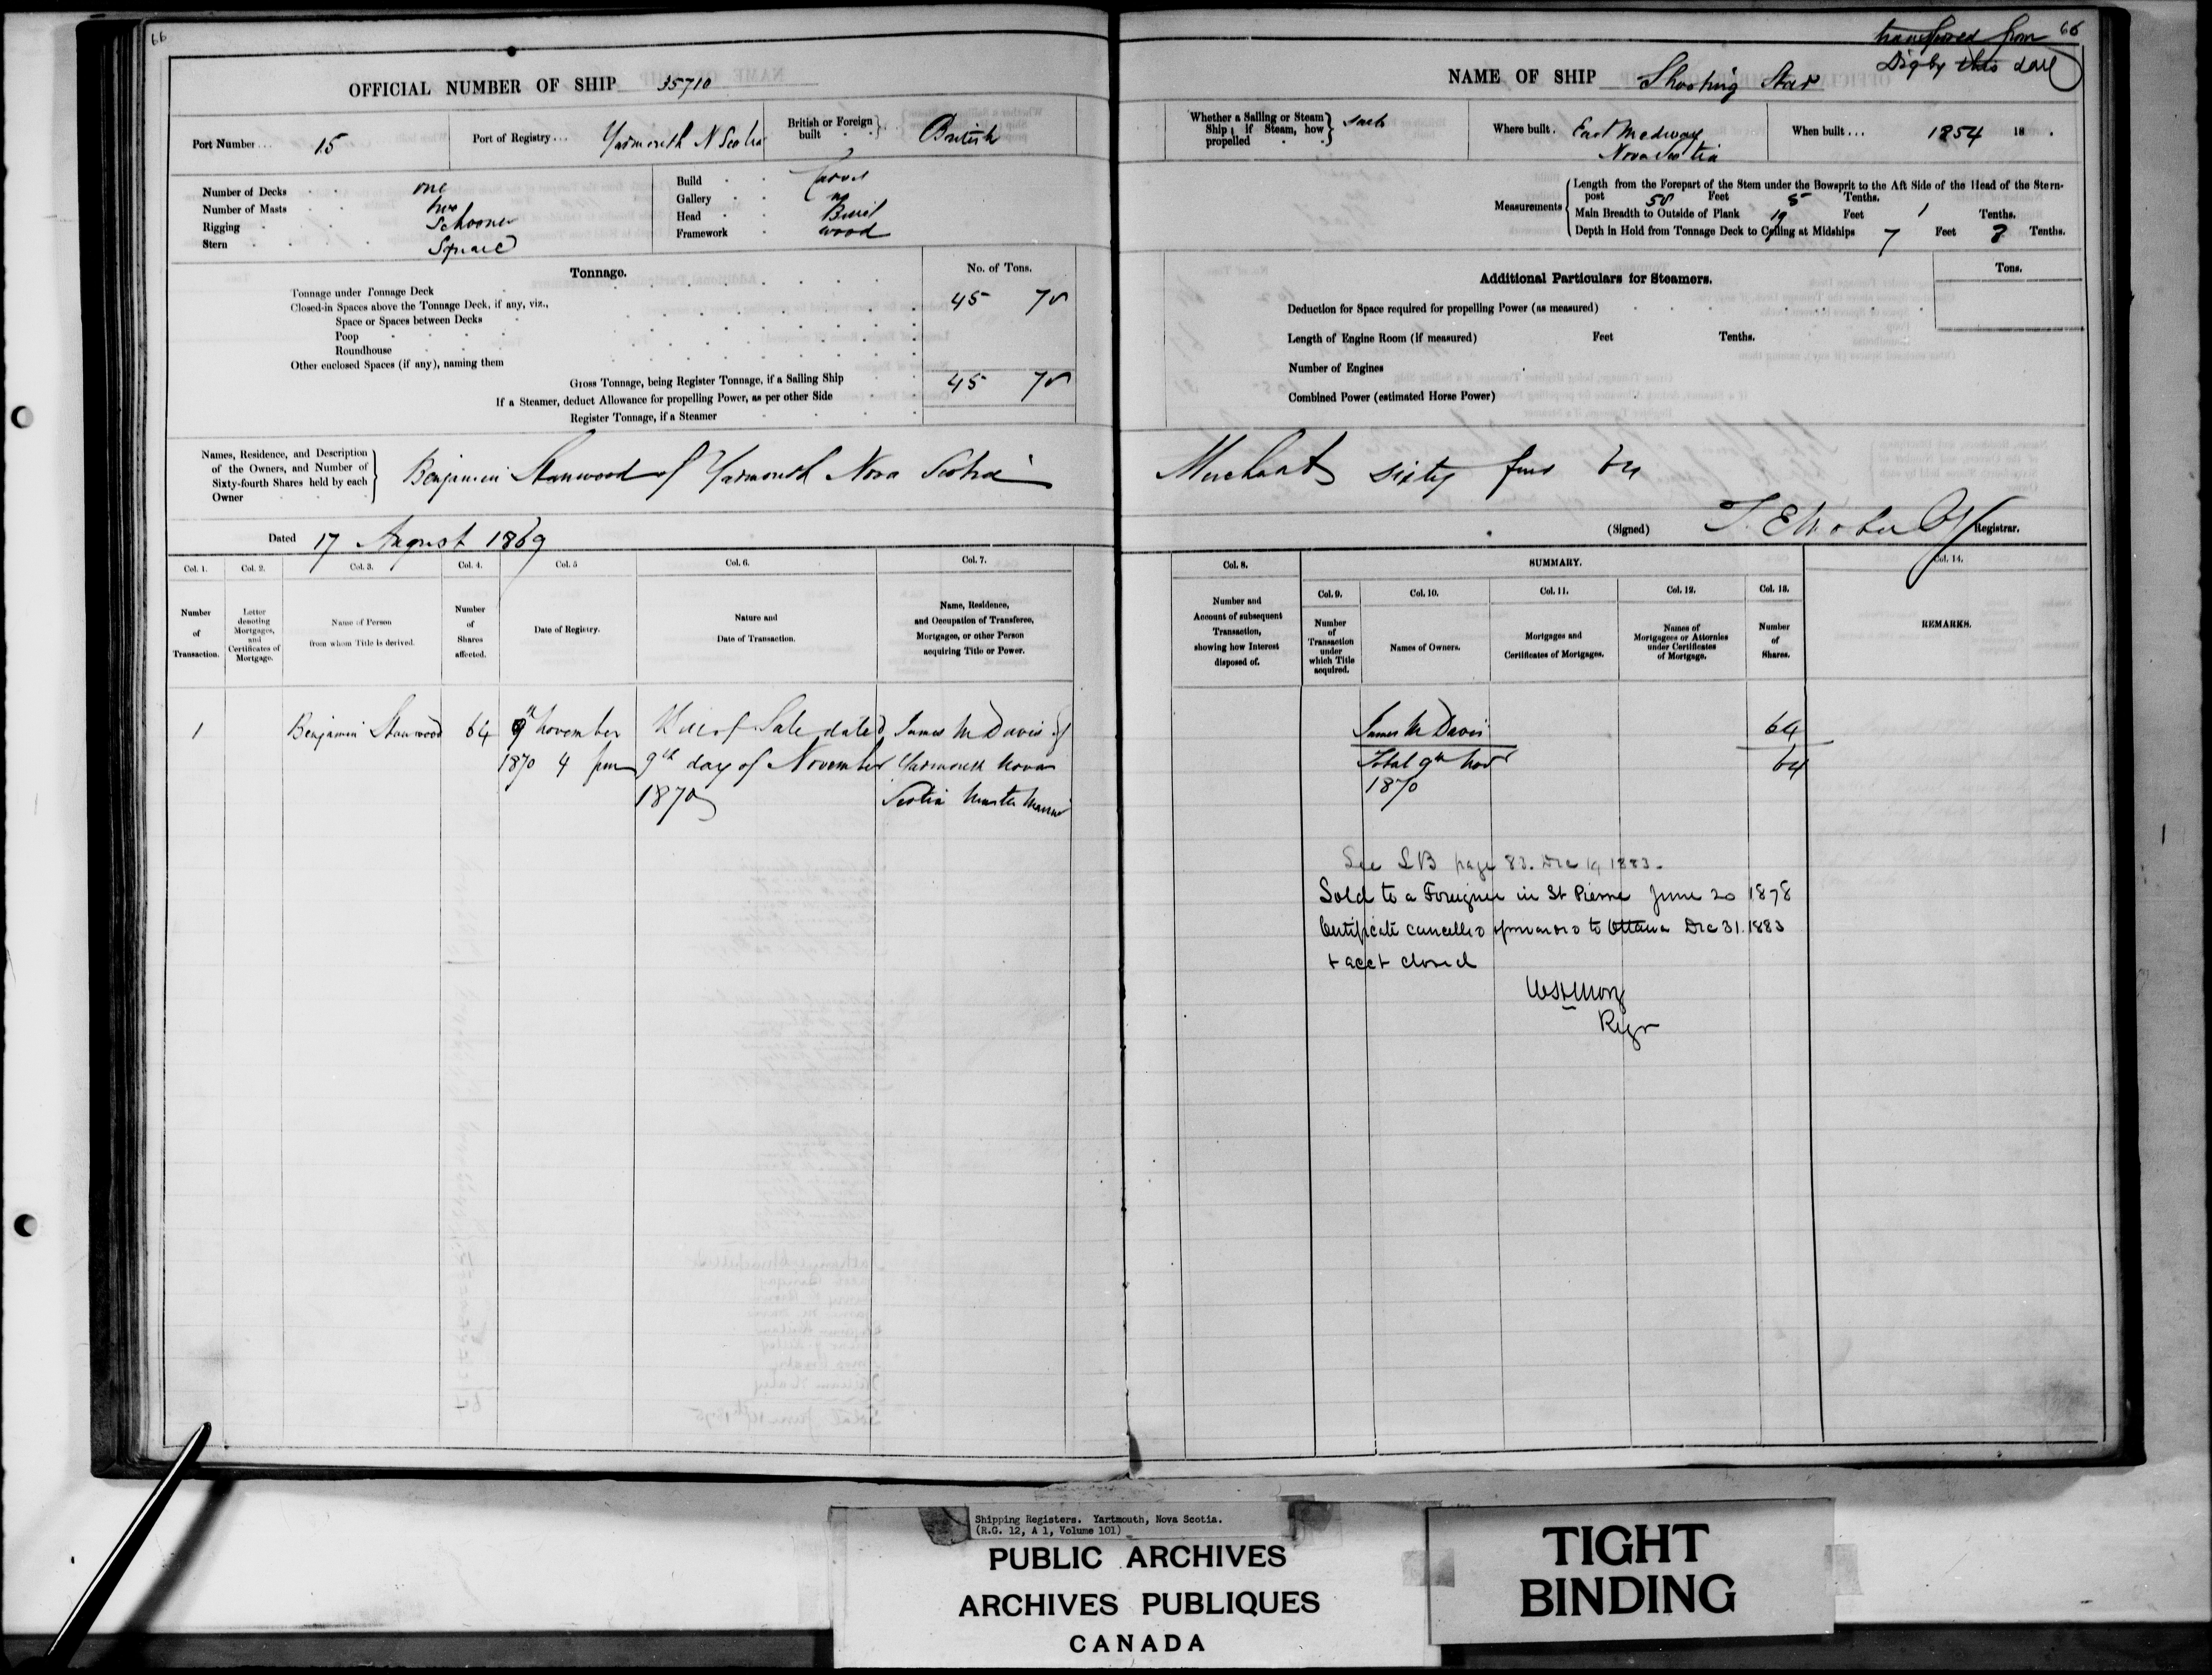 66
OFFICIAL NUMBER OF SHIP 35710
Port Number... 15
Port of Registry... Yarmouth N Scotia
British or Foreign built British
Number of Decks one
Number of Masts two
Rigging Schooner
Stern Square
Build Carvel
Gallery no
Head
Framework wood
Tonnage.
No. of Tons.
Tonnage under Tonnage Deck 45 78
Closed-in Spaces above the Tonnage Deck, if any, viz.,
Space or Spaces between Decks
Poop
Roundhouse
Other enclosed Spaces (if any), naming them
Gross Tonnage, being Register Tonnage, if a Sailing Ship 45 78
If a Steamer, deduct Allowance for propelling Power, as per other Side
Register Tonnage, if a Steamer
Names, Residence, and Description
of the Owners, and Number of
Sixty-fourth Shares held by each
Owner
Benjamin Stanwood of Yarmouth Nova Scotia
Dated 17 August 1869
Col. 1. Col. 2. Col. 3. Col. 4. Col. 5 Col. 6. Col. 7.
Number of Transaction.
Letter denoting Mortgages, and Certificates of Mortgage.
Name of Person from whom Title is derived.
Number of Shares affected.
Date of Registry.
Nature and Date of Transaction.
Name, Residence, and Occupation of Transferee, Mortgagee, or other Person acquiring Title or Power.
1 Benjamin Stanwood 64 9th November Bill of Sale dated James M Davis of
1870 4 pm 9th day of November Yarmouth Nova
1870 Scotia Master Mariner
transferred from 66
Digby this date
NAME OF SHIP Shooting Star
Whether a Sailing or Steam
Ship; if Steam, how
propelled
Where built. East Medway
Nova Scotia
When built... 1854 18
Measurements
Length from the Forepart of the Stem under the Bowsprit to the Aft Side of the Head of the Stern-
post 58 Feet 5 Tenths.
Main Breadth to Outside of Plank 19 Feet 1 Tenths.
Depth in Hold from Tonnage Deck to Ceiling at Midships 7 Feet 3 Tenths.
Additional Particulars for Steamers.
Tons.
Deduction for Space required for propelling Power (as measured)
Length of Engine Room (if measured) Feet Tenths.
Number of Engines
Combined Power (estimated Horse Power)
Merchant sixty four 64
(Signed) Registrar.
Col. 8.
SUMMARY.
Col. 14.
Col. 9. Col. 10. Col. 11. Col. 12. Col. 13.
Number and Account of subsequent Transaction, showing how Interest disposed of.
Number of Transaction under which Title acquired.
Names of Owners.
Mortgages and Certificates of Mortgages.
Names of Mortgagees or Attornies under Certificates of Mortgage.
Number of Shares.
REMARKS.
James M Davis 64
Total 9th Novr 64
1870
See LB page 83. Dec 19 1883.
Sold to a Foreigner in St Pierre June 20 1878
Certificate cancelled forwarded to Ottawa Dec 31. 1883
+ acct closed
Regr
Shipping Registers. Yartmouth, Nova Scotia.
(R.G. 12, A 1, Volume 101)
PUBLIC ARCHIVES
ARCHIVES PUBLIQUES
CANADA
TIGHT
BINDING